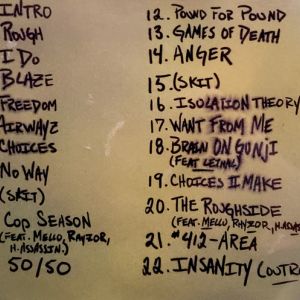 INTRO
ROUGH
I DO
BLAZE
FREEDOM
AIRWAYZ
CHOICES
NO WAY
(SKIT)
COP SEASON
(FEAT. MELLO, RAYZOR,
H.ASSASSIN.)
50/50
12. POUND FOR POUND
13. GAMES OF DEATH
14. ANGER
15. (SKIT)
16. ISOLATION THEORY
17. WANT FROM ME
18. BRAIN ON GUNJI
(FEAT LETHAL)
19. CHOICES II MAKE
20. THE ROUGHSIDE
(FEAT. MELLO, RAYZOR, H.ASSA
21. #412-AREA
22. INSANITY (OUTRO